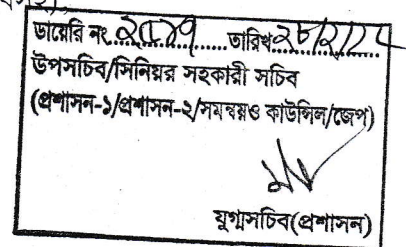 ডায়েরি নং.২৫৪৭.......তারিখ২৮/২/২৮
উপসচিব/সিনিয়র সহকারী সচিব
(প্রশাসন-১/প্রশাসন-২/সমন্বয়ও কাউন্সিল/জেপ)
যুগ্মসচিব(প্রশাসন)